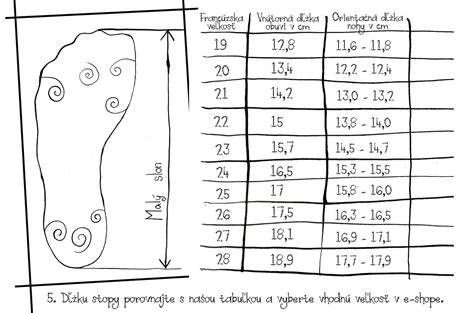 Francúzska Vnútorná dĺžka Orientačná dĺžka
veľkosť obuvi v cm nohy v cm
19 12,8 11,6 - 11,8
20 13,4 12,2 - 12,4
21 14,2 13,0 - 13,2
22 15 13,8 - 14,0
23 15,7 14,5 - 14,7
24 16,5 15,3 - 15,5
25 17 15,8 - 16,0
26 17,5 16,3 - 16,5
27 18,1 16,9 - 17,1
28 18,9 17,7 - 17,9
Malý slon
5. Dĺžku stopy porovnajte s našou tabuľkou a vyberte vhodnú veľkosť v e-shope.